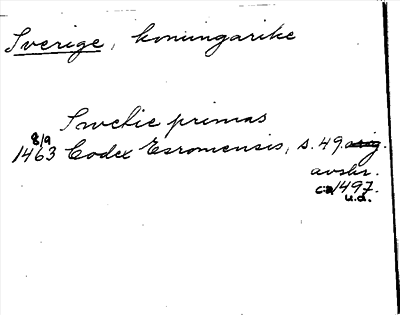 Sverige, konungarike
Swetie primas
8/9
1463 Codex Esromensis, s. 49. orig.
avskr.
ca 1497.
u.d.